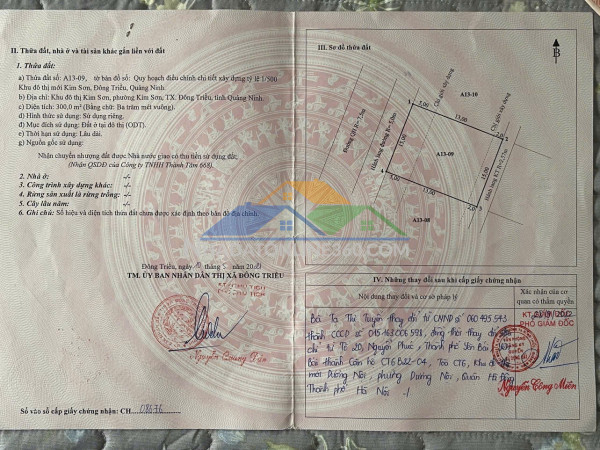 II. Thửa đất, nhà ở và tài sản khác gắn liền với đất
1. Thửa đất:
a) Thửa đất số: A13-09, tờ bản đồ số: Quy hoạch điều chỉnh chi tiết xây dựng tỷ lệ 1/500
Khu đô thị mới Kim Sơn, Đông Triều, Quảng Ninh.
b) Địa chỉ: Khu đô thị Kim Sơn, phường Kim Sơn, TX. Đông Triều, tỉnh Quảng Ninh.
c) Diện tích: 300,0 m² (Bằng chữ: Ba trăm mét vuông).
d) Hình thức sử dụng: Sử dụng riêng.
đ) Mục đích sử dụng: Đất ở tại đô thị (ODT).
e) Thời hạn sử dụng: Lâu dài.
g) Nguồn gốc sử dụng:
Nhận chuyển nhượng đất được Nhà nước giao có thu tiền sử dụng đất;
(Nhận QSDĐ của Công ty TNHH Thành Tâm 668).
2. Nhà ở: -/-
3. Công trình xây dựng khác: -/-
4. Rừng sản xuất là rừng trồng: -/-
5. Cây lâu năm: -/-
6. Ghi chú: Số hiệu và diện tích thửa đất chưa được xác định theo bản đồ địa chính.
Đông Triều, ngày tháng năm
TM. ỦY BAN NHÂN DÂN THỊ XÃ ĐÔNG TRIỀU
Nguyễn Quang
Số vào sổ cấp giấy chứng nhận: CH
III. Sơ đồ thửa đất
B
A13-10
Chỉ giới xây dựng
1
5,00
13,00
2,00
2
15,00
A13-09
15,00
4
5,00
13,00
2,00
3
A13-08
IV. Những thay đổi sau khi cấp giấy chứng nhận
Nội dung thay đổi và cơ sở pháp lý
Xác nhận của cơ quan có thẩm quyền
Bà Tạ Thị Tuyến thay đổi từ CMND số 060495543
thành CCCD số đồng thời thay đổi địa
chỉ từ Tổ 20, Nguyễn Phúc, Thành phố Yên Bái
thành Căn hộ CT6B22-04, Toà CT6, Khu đô thị
mới Dương Nội, phường Dương Nội, Quận Hà Đông
Thành phố Hà Nội ./
KT.
PHÓ GIÁM ĐỐC
Nguyễn Công Miên